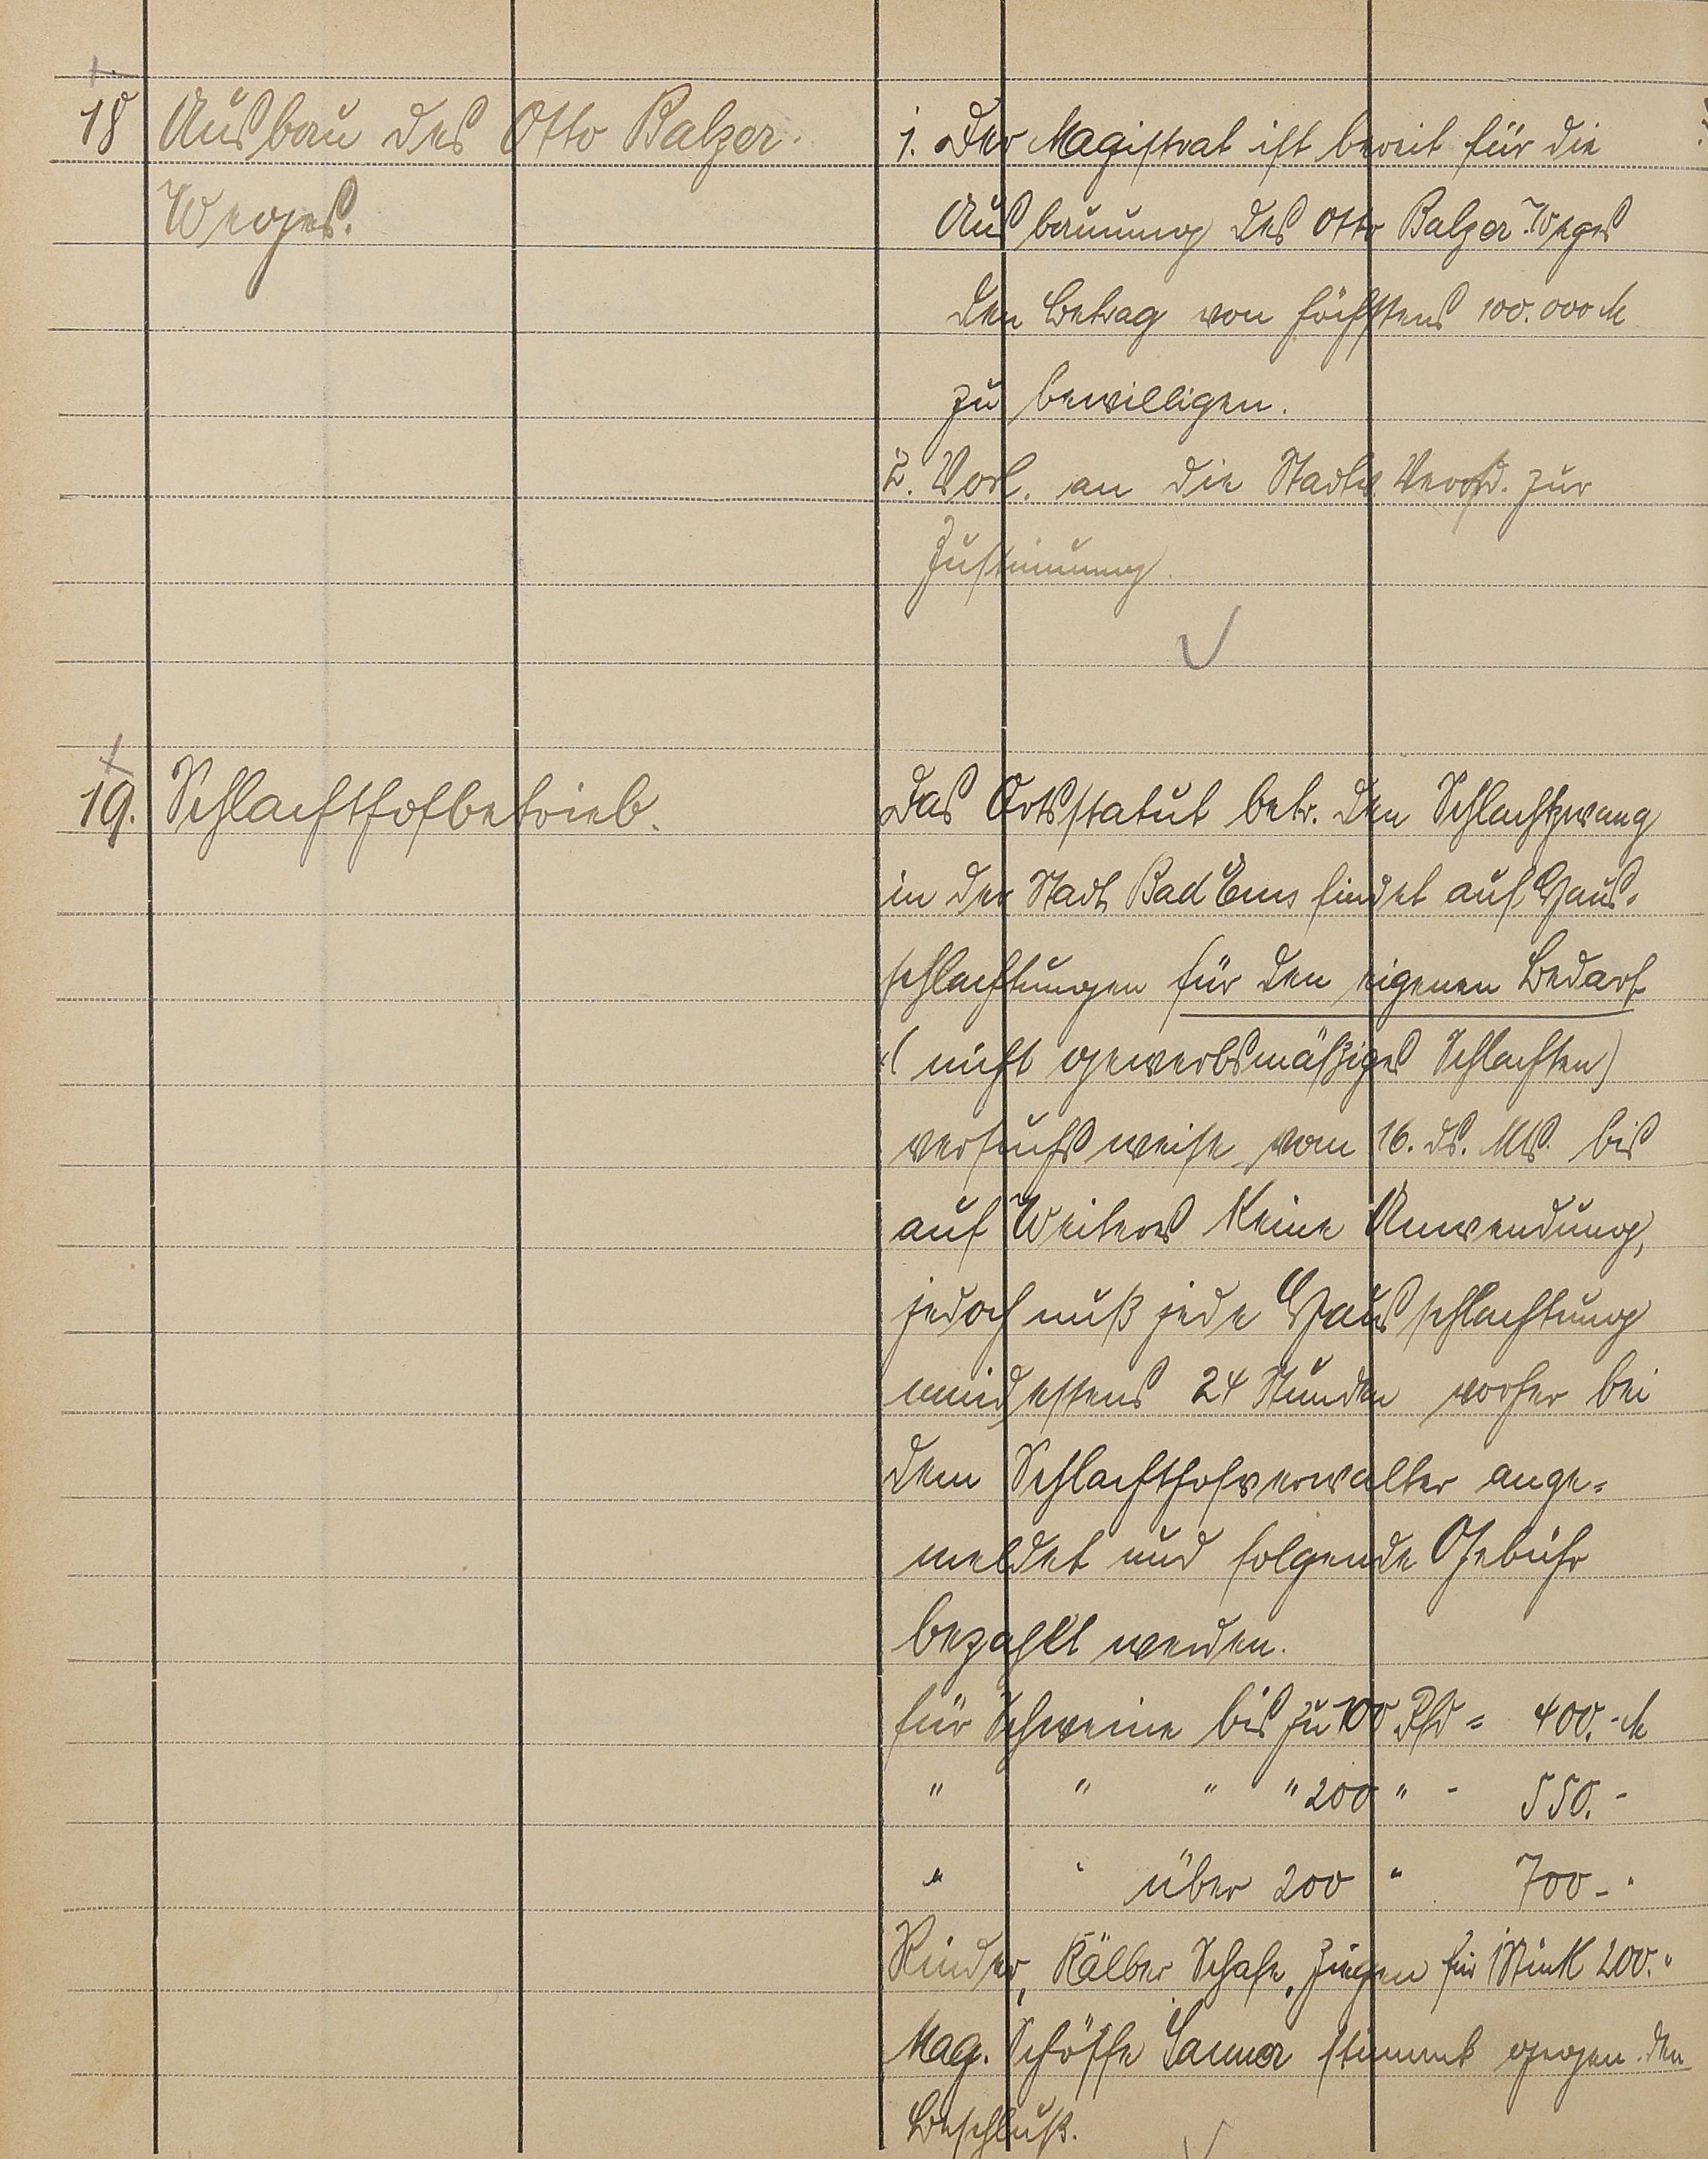 18 Ausbau des Otto Balzer-
Weges.
1. Der Magistrat ist bereit für die
Ausbauung des Otto Balzer-Weges
den Betrag von höchstens 100.000 M
zu bewilligen.
2. Vorl. an die Stadtv. Versd. zur
Zustimmung.
19. Schlachthofbetrieb.
Das Ortsstatut betr. den Schlachtzwang
in der Stadt Bad Ems findet auf Haus-
schlachtungen für den eigenen Bedarf
(nicht gewerbsmäßiges Schlachten)
versuchsweise vom 16. ds. Mts. bis
auf Weiteres keine Anwendung,
jedoch muß jede Hausschlachtung
mindestens 24 Stunden vorher bei
dem Schlachthofverwalter ange-
meldet und folgende Gebühr
bezahlt werden.
für Schweine bis zu 100 Pfd = 400.- M
" " " " 200 " - 550.-
" " über 200 " 700 - "
Rinder, Kälber Schafe, Ziegen für 1 Stück 200. "
Mag. Schöffe Sanner stimmt gegen den
Beschluß.